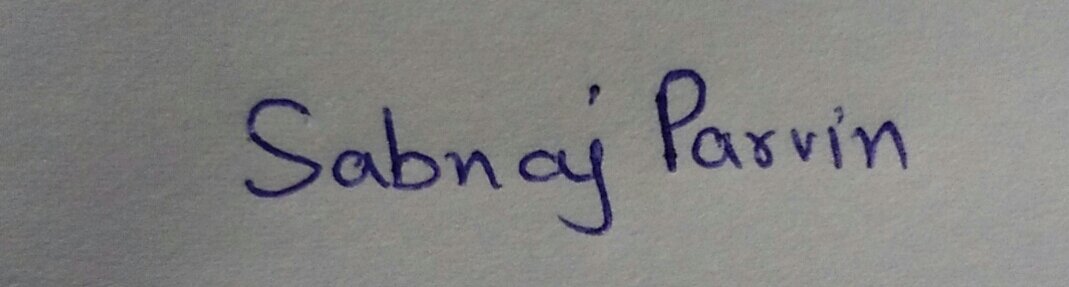 Sabnaj Parvin